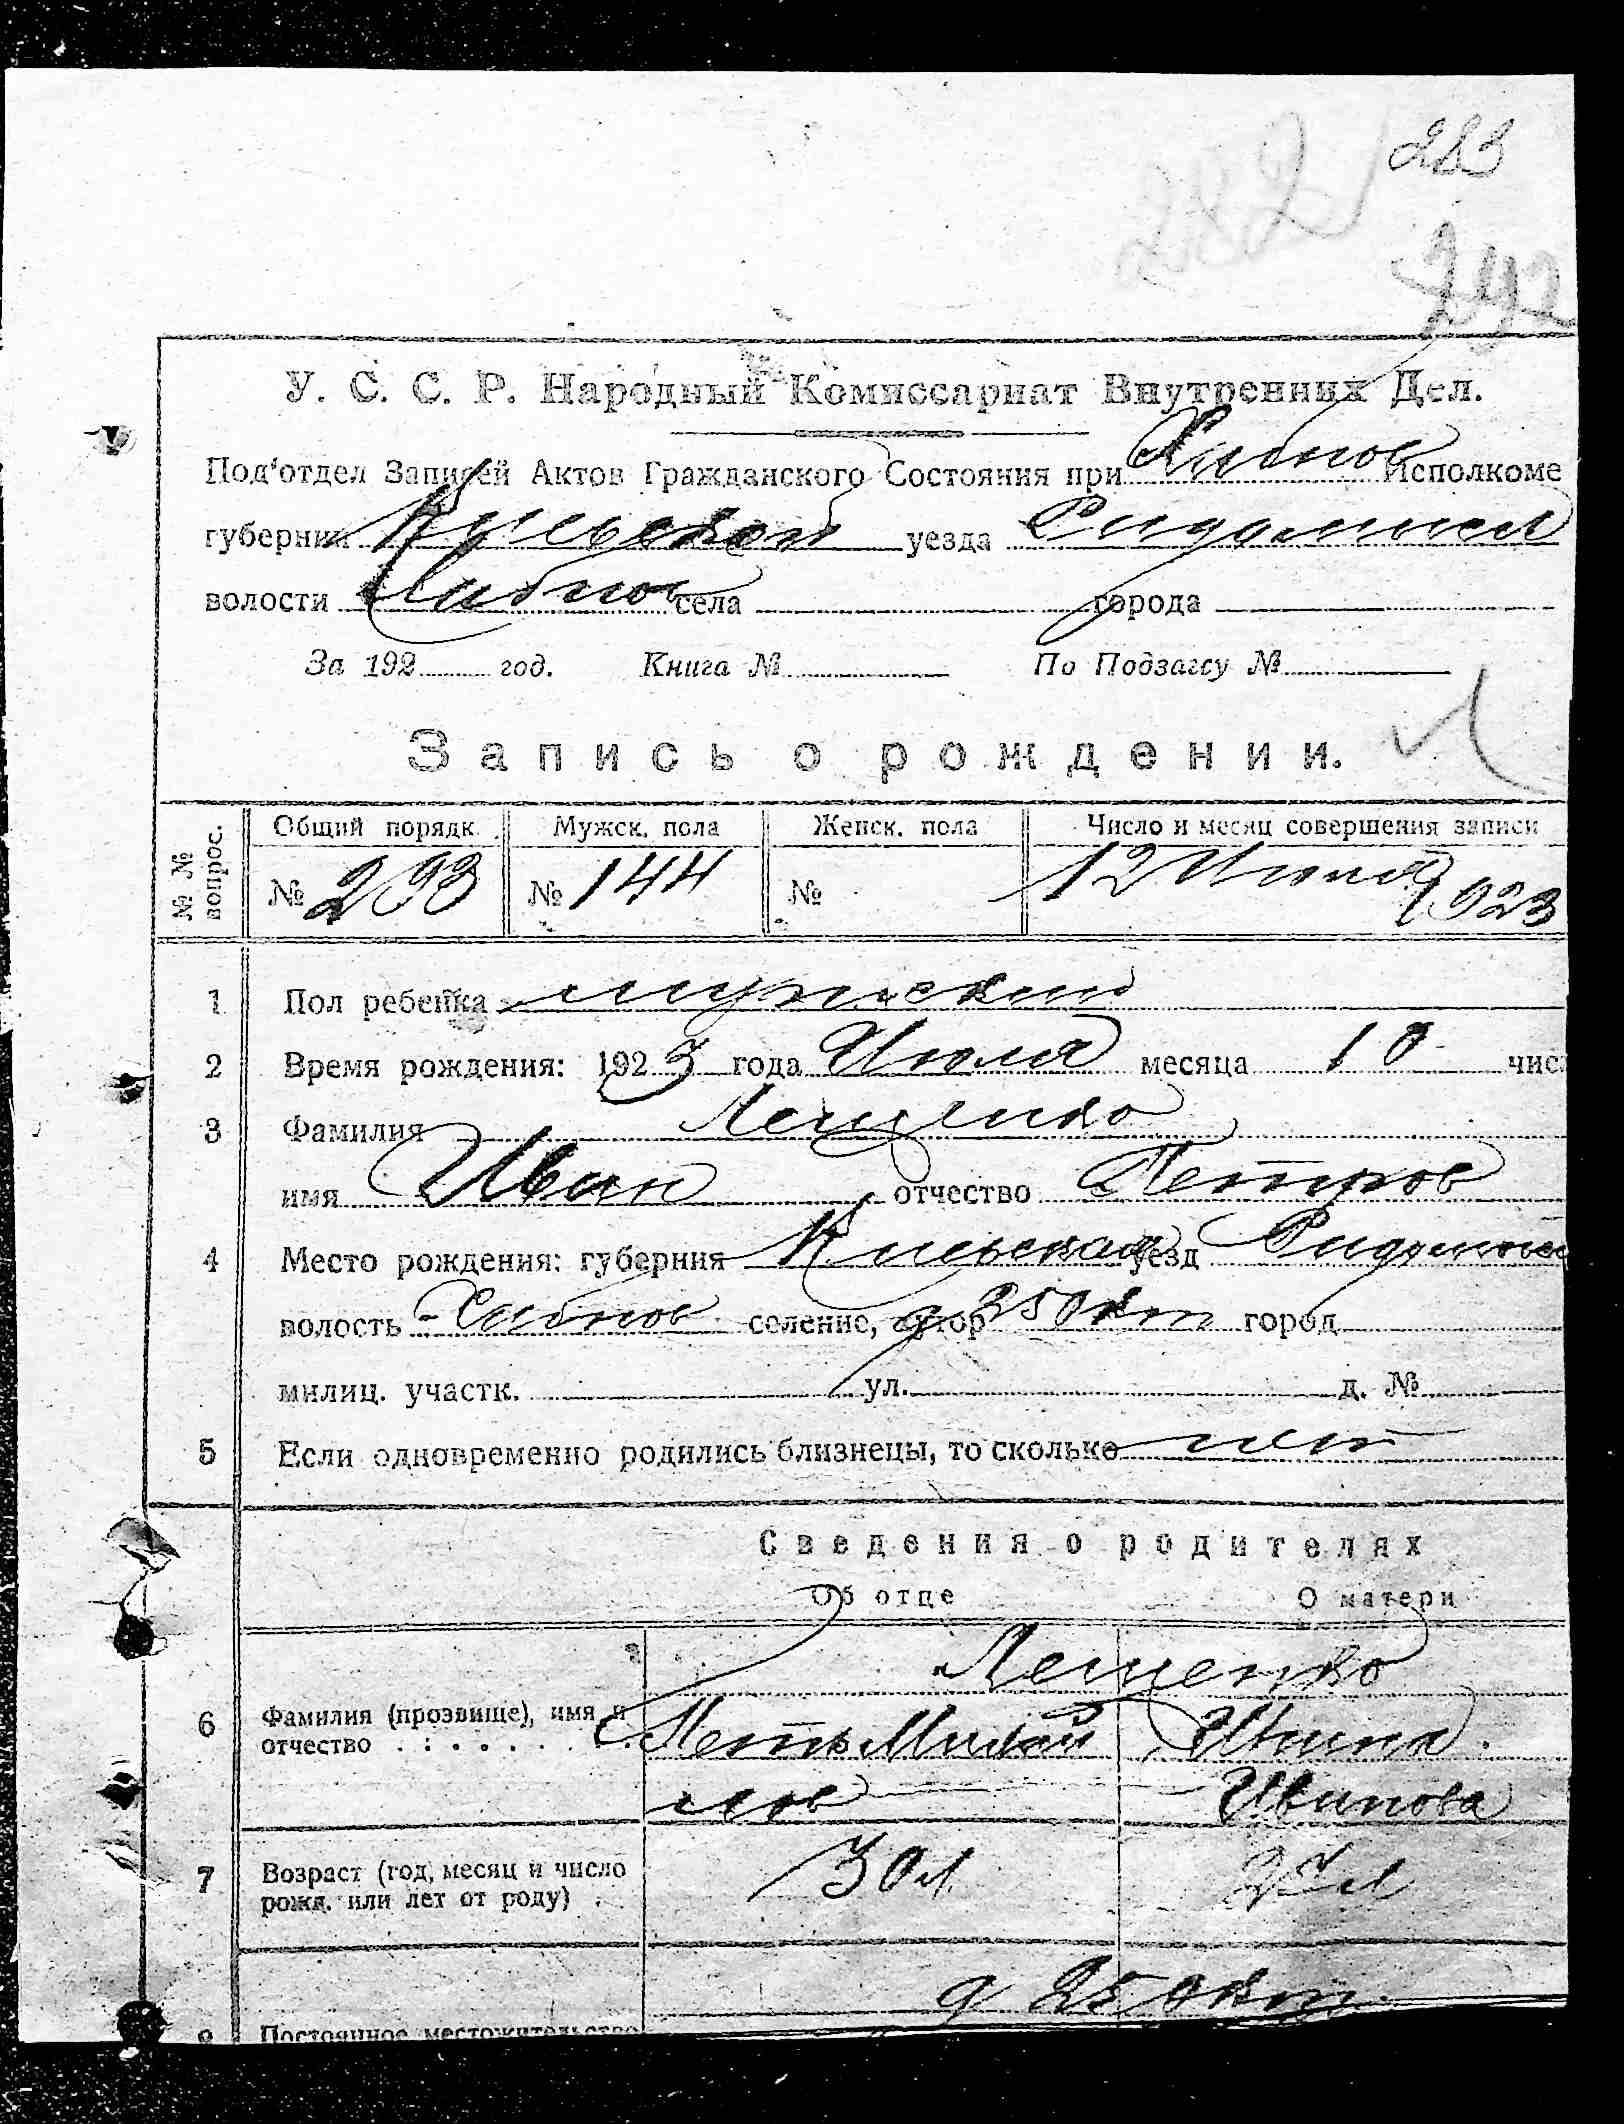 283
282
292
У. С. С. Р. Народный Комиссариат Внутренних Дел.
Под'отдел Записей Актов Гражданского Состояния при Хабнов Исполкоме
губернии Киевской уезда Радомысл
волости Хабнов села города
За 192 год. Книга № По Подзагсу №
Запись о рождении.
№ № вопрос. Общий порядк. Мужск. пола Женск. пола Число и месяц совершения записи
№ 293 № 144 № 12 Июля 1923
1 Пол ребенка мужеский
2 Время рождения: 1923 года Июля месяца 10 числ
3 Фамилия Лещенко
имя Иван отчество Петров
4 Место рождения: губерния Киевская уезд Радомысл
волость Хабнов селение, хутор д 25 Окт город
милиц. участк. ул. д. №
5 Если одновременно родились близнецы, то сколько нет
Сведения о родителях
Об отце О матери
Лещенко
6 Фамилия (прозвище), имя и
отчество Петр Михай Ирина
лов Иванова
7 Возраст (год, месяц и число
рожд. или лет от роду) 30 л
д 25 Окт
8 Постоянное местожительство